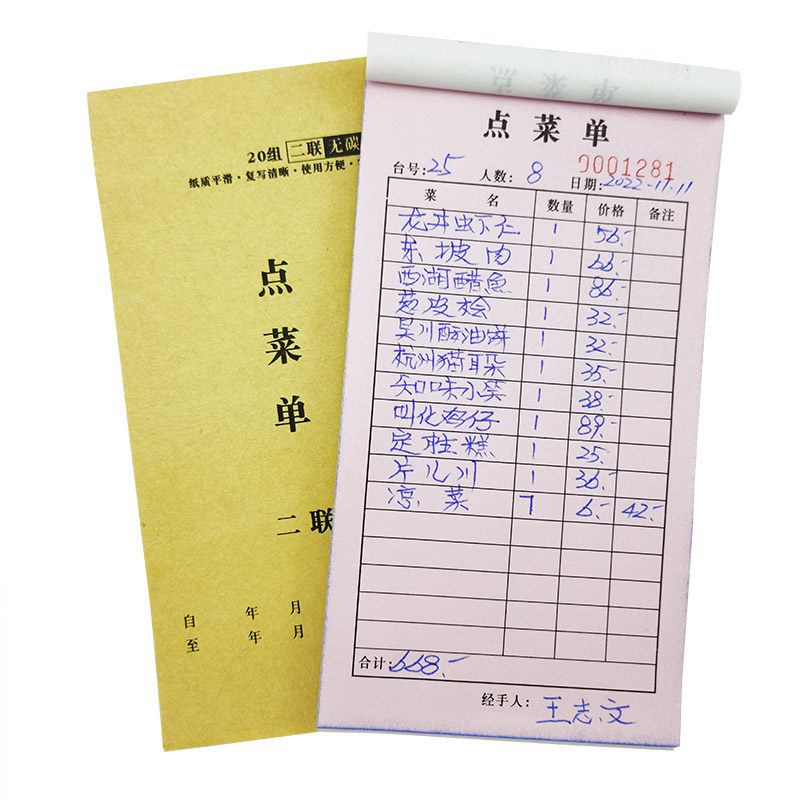 20组 二联 无碳
纸质平滑·复写清晰·使用方便·
点
菜
单
二联
自 年 月
至 年 月
0001281
点菜单
点菜单
台号: 25 人数: 8 0001281
日期: 2022-11-11
菜 名 数量 价格 备注
龙井虾仁 1 56.-
东坡肉 1 66.-
西湖醋鱼 1 86.-
葱皮桧 1 32.-
吴川酥油饼 1 32.-
杭州猫耳朵 1 35.-
知味小笼 1 38.-
叫化鸡仔 1 89.-
定胜糕 1 25.-
片儿川 1 36.-
凉菜 7 6.- 42.-
合计: 668.-
经手人: 王志文